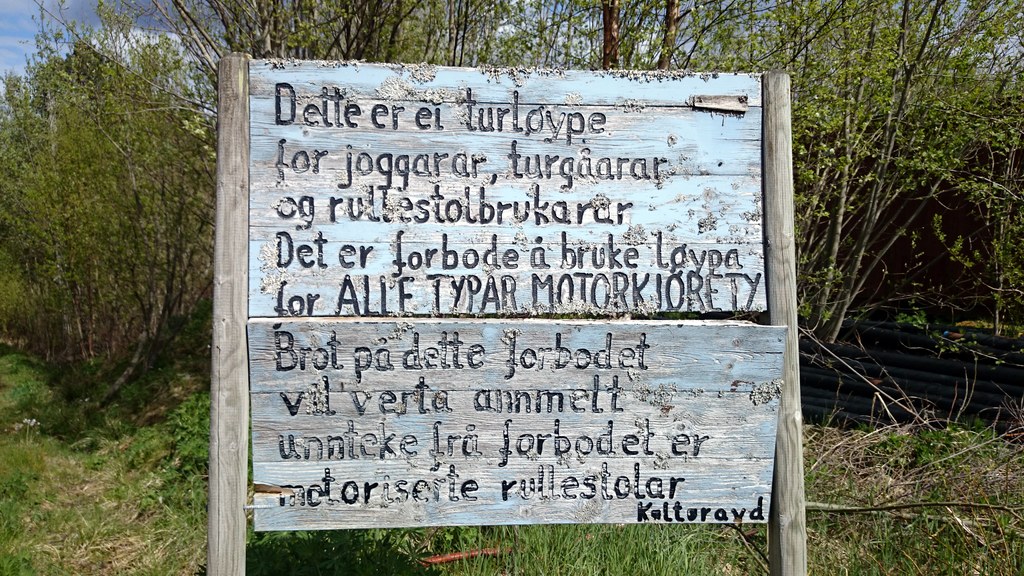 Dette er ei turløype
for joggarar, turgåarar
og rullestolbrukarar
Det er forbode å bruke løypa
for ALLE TYPAR MOTORKJØRETY
Brot på dette forbodet
vil verta annmelt
unnteke frå forbodet er
motoriserte rullestolar
Kulturavd